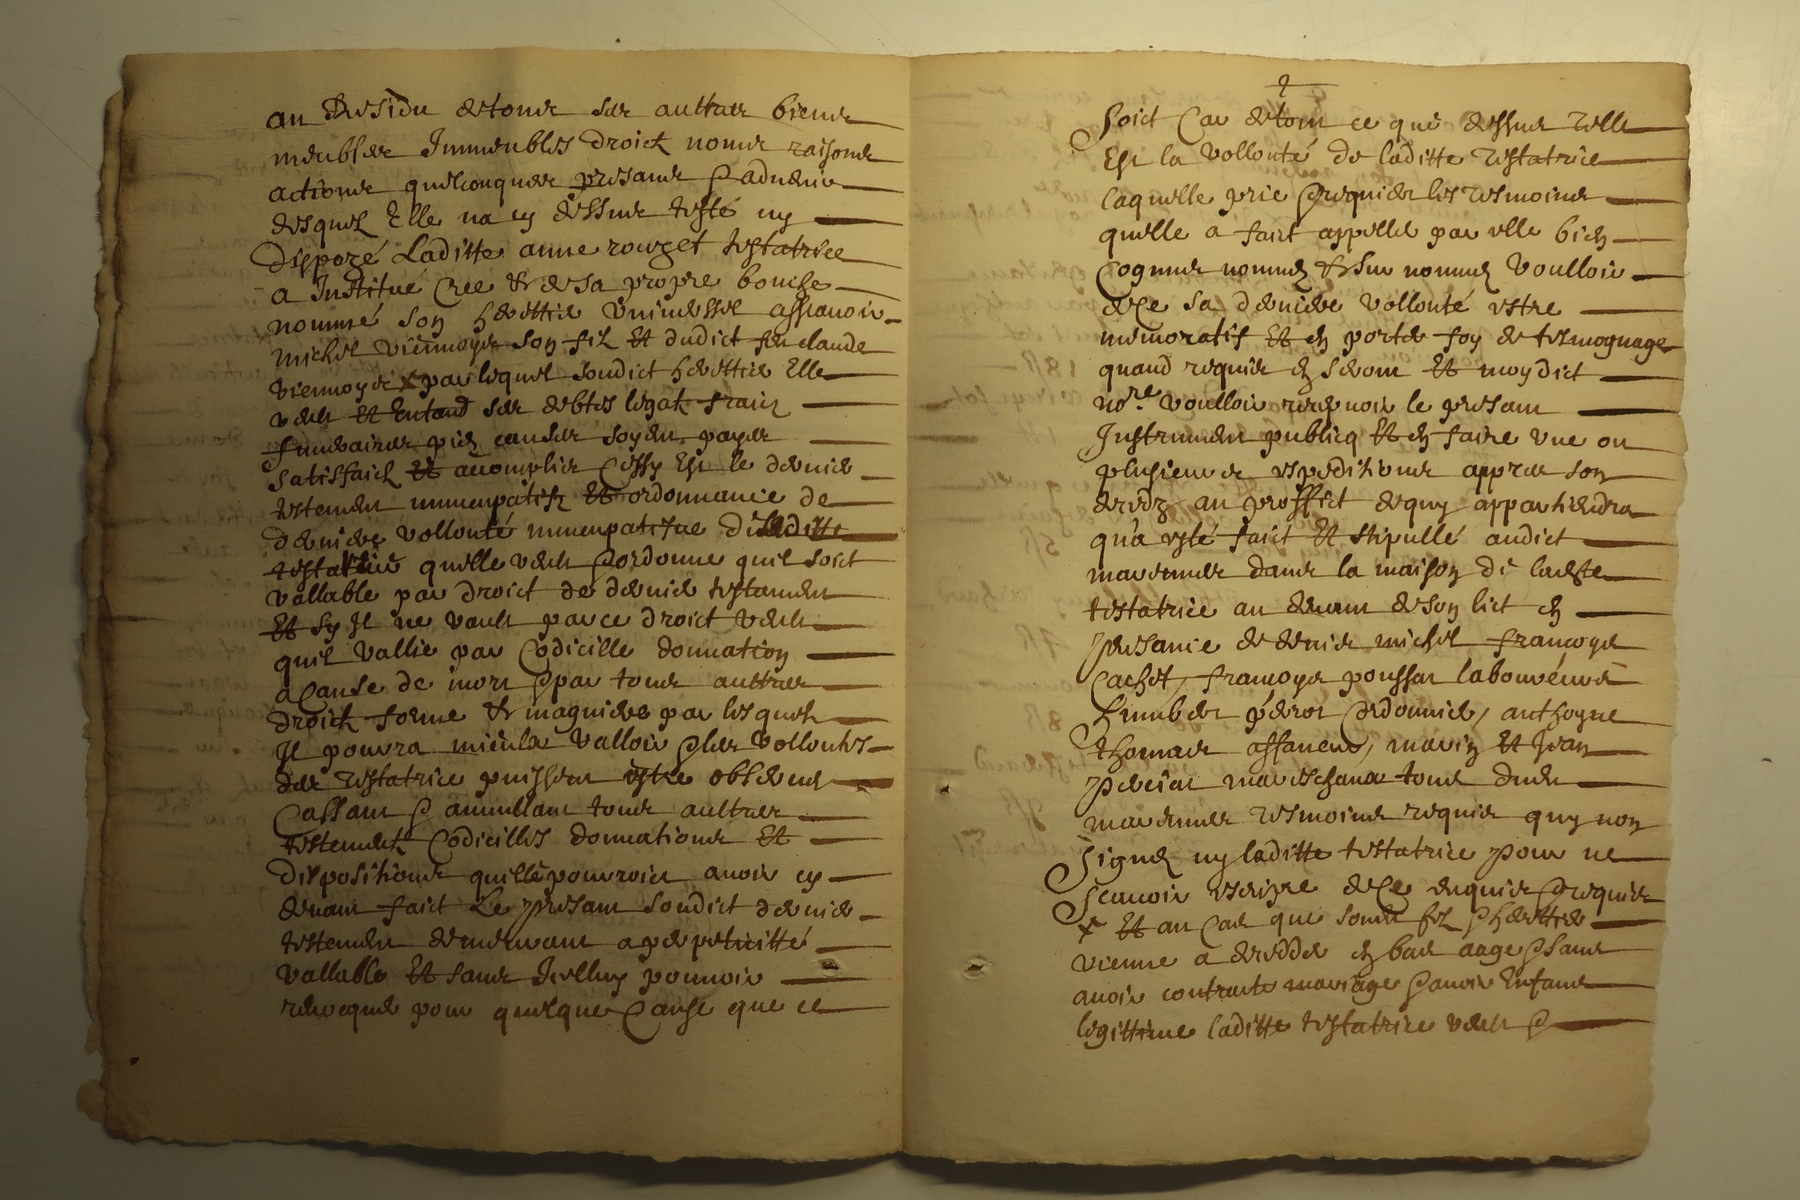 au Residu de tous ses aultres biens
meubles Immeubles droictz noms raisons
actions quelconques presans & advenir
desquelz Elle na cy dessus testé ny
disposé Laditte anne rouget testatrice
a Institué Cree et de sa propre bouche
nommé son herittier universel assavoir
michel viennoys son filz Et dudict feu claude
viennoys x par lequel sondict herittier Elle
veult Et Entend ses debtes legatz fraiz
funeraires piez causes soyent payes
satisfaictz Et accomplis Cessy Est le dernier
testement nuncupatifz Et ordonnance de
derniere vollonté nuncupatifue de laditte
testatrice quelle veult & ordonne quil soit
vallable par droict de dernier testament
Et sy Il ne vault par ce droict veult
quil vallie par Codicille donnation
a Cause de mort & par tous aultres
droictz forme et magnieres par lesquelz
Il pourra mieulx valloir & les vollontes
des testatrice puissent estre observes
Cassant & annullant tous aultres
testementz Codicilles donnations Et
dispositions quelle pourroict avoir cy
devant faict Le presant sondict dernier
testement demeurant a perpetuitté
vallable Et sans Icelluy pouvoir
revocquer pour quelque Cause que ce
2
soict Car de tout ce que dessus telle
Est la vollonté de laditte testatrice
laquelle prie & requier les tesmoins
quelle a faict appeller par elle bien
Cognus nommez & surnommez voulloir
de Ce sa derniere vollonté estre
memoratif Et en porter foy de tesmognage
quand requis en seront Et moydict
nore voulloir recepvoir le presant
Instrument publicq Et en faire une ou
plusieurs expeditions appres son
decedz au proffict de quy appartiendra
qu'a esté faict Et stipullé audict
mavennes dans la maison de ladicte
testatrice au devant de son lict en
presance de denis michel françoys
Cachet, françoys poussat laboureurs
humbert perrot Cordonnier, anthoyne
thomas affaneur, marin Et Jean
perciat mareschaux tous dudit
mavennes tesmoins requis quy non
signez ny laditte testatrice pour ne
scavoir escripre de Ce enquis & requis
x Et au Cas que sondit filz & herittier
vienne a decedder en bas aage & sans
avoir contracte mariage & avoir Enfans
legittime laditte testatrice veult &